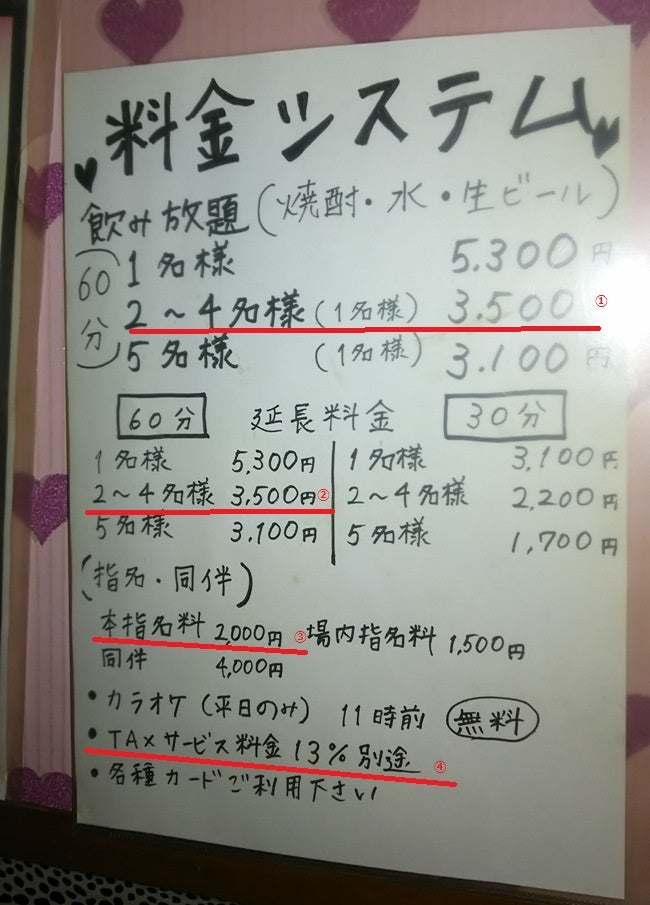 料金システム
飲み放題(焼酎・水・生ビール)
(60分)
1名様 5.300円
2～4名様(1名様) 3.500 ①
5名様 (1名様) 3.100円
60分 延長料金 30分
1名様 5,300円 1名様 3,100円
2～4名様 3,500円② 2～4名様 2,200円
5名様 3,100円 5名様 1,700円
(指名・同伴)
本指名料 2,000円 ③ 場内指名料 1,500円
同伴 4,000円
・カラオケ(平日のみ) 11時前 無料
・TAXサービス料金 13%別途 ④
・各種カードご利用下さい